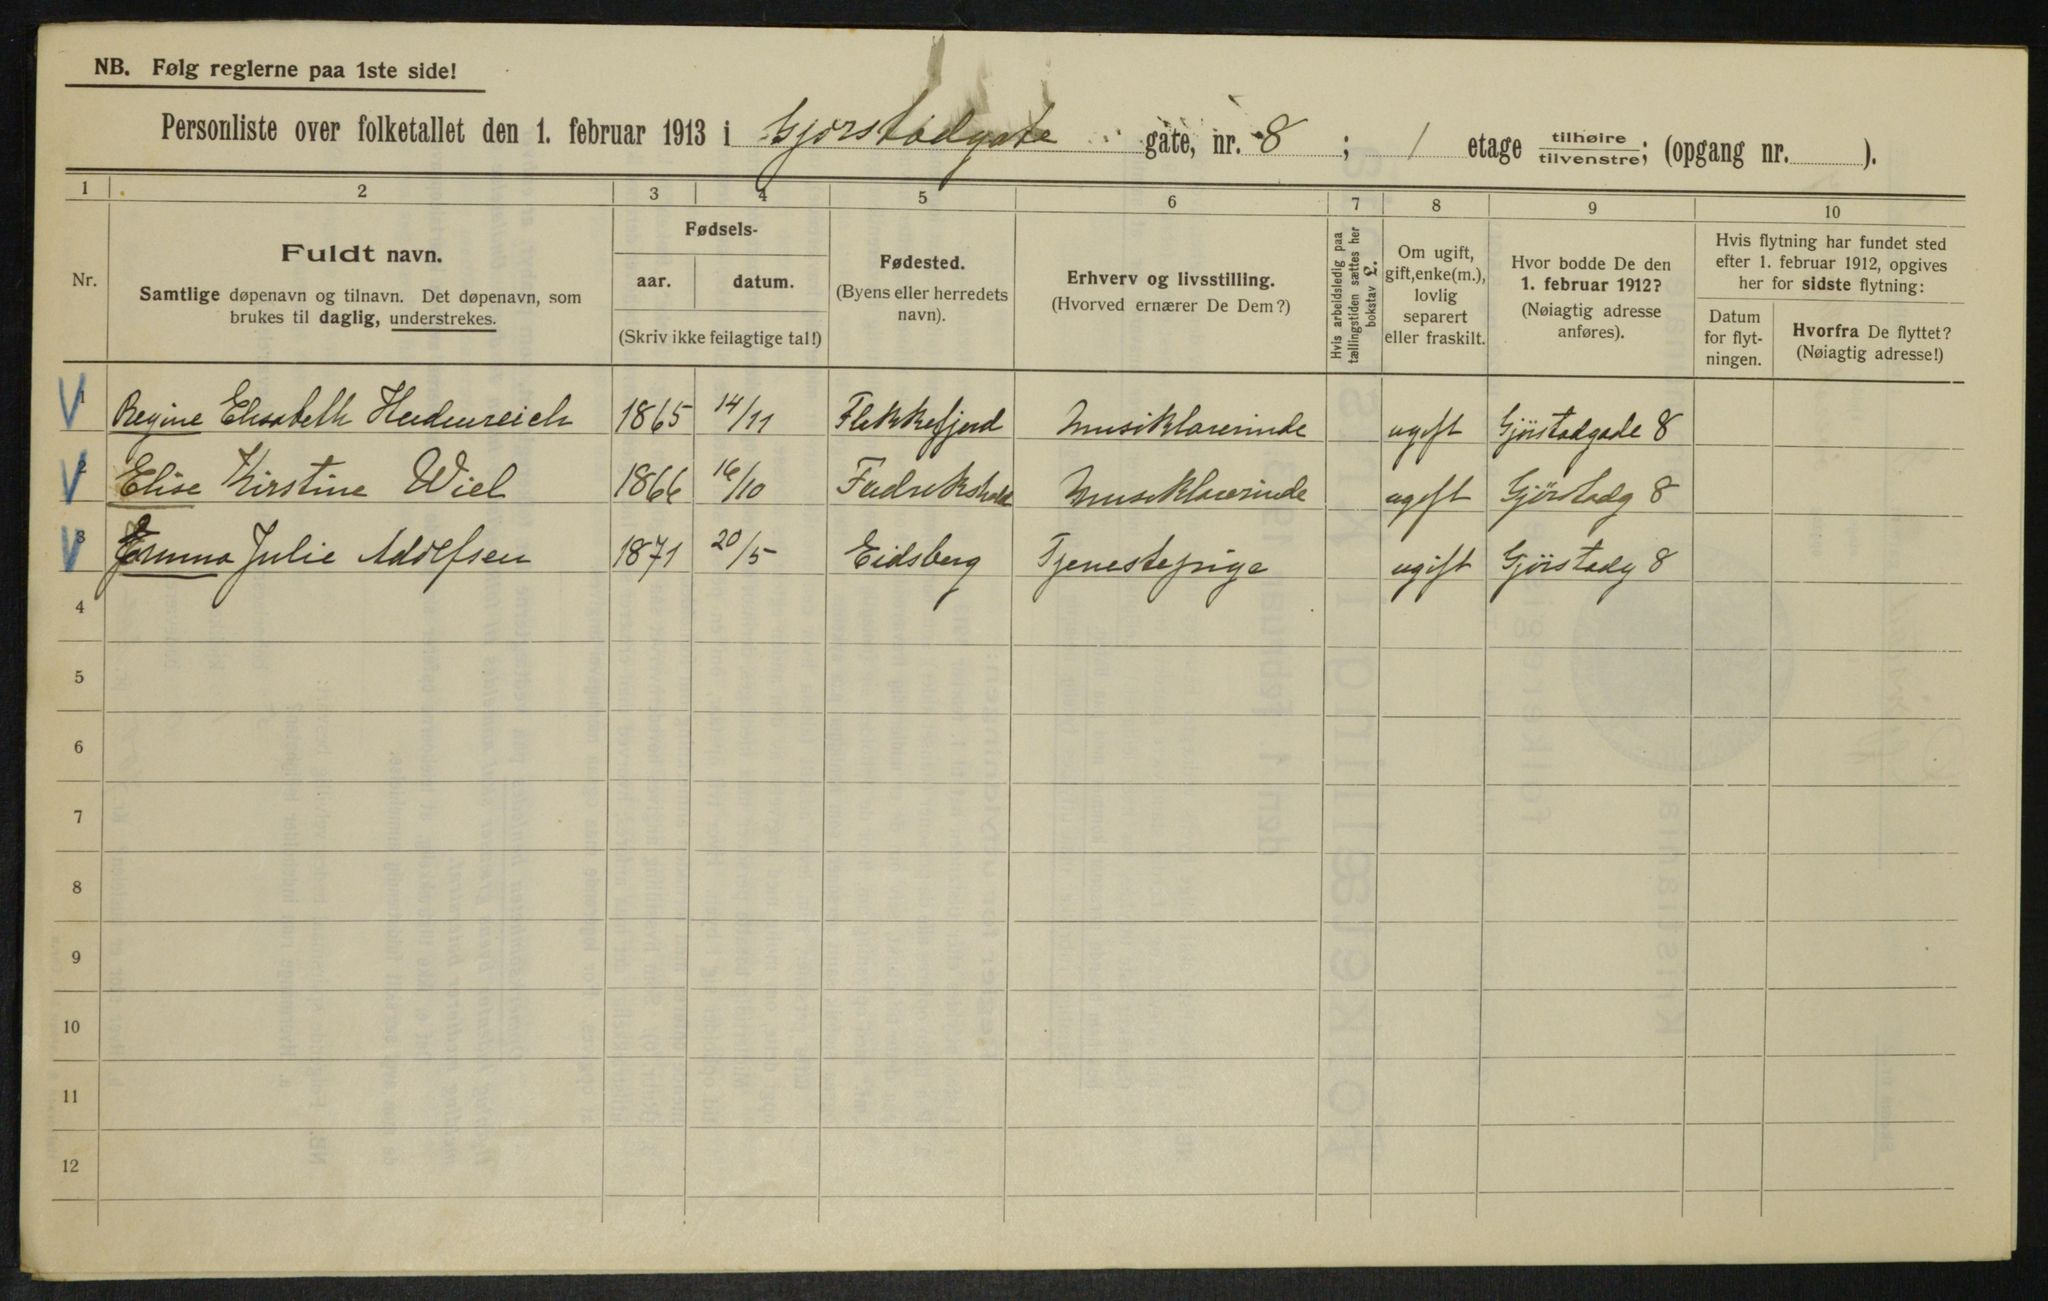 NB. Følg reglerne paa 1ste side!
Personliste over folketallet den 1. februar 1913 i Gjörstadgate gate, nr. 8 ; 1 etage tilhøire/tilvenstre; (opgang nr. ).
1 2 3 4 5 6 7 8 9 10
Nr.
Fuldt navn.
Samtlige døpenavn og tilnavn. Det døpenavn, som
brukes til daglig, understrekes.
Fødsels-
aar. datum.
(Skriv ikke feilagtige tal!)
Fødested.
(Byens eller herredets
navn).
Erhverv og livsstilling.
(Hvorved ernærer De Dem?)
Hvis arbeidsledig paa
tællingstiden sættes her
bokstav L.
Om ugift,
gift, enke(m.),
lovlig
separert
eller fraskilt.
Hvor bodde De den
1. februar 1912?
(Nøiagtig adresse
anføres).
Hvis flytning har fundet sted
efter 1. februar 1912, opgives
her for sidste flytning:
Datum
for flyt-
ningen.
Hvorfra De flyttet?
(Nøiagtig adresse!)
1 Regine Elisabeth Heidenreich 1865 14/11 Flekkefjord Musiklærerinde ugift Gjörstadgade 8
2 Elise Kirstine Wiel 1866 16/10 Fredrikshald Musiklærerinde ugift Gjörstadg 8
3 Emma Julie Adolfsen 1871 20/5 Eidsberg Tjenestepige ugift Gjörstadg 8
4
5
6
7
8
9
10
11
12